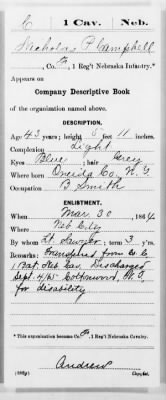 C | 1 Cav. | Neb.
Nicholas P Campbell
, Co. , 1 Reg't Nebraska Infantry.*
Appears on
Company Descriptive Book
of the organization named above.
DESCRIPTION.
Age 43 years; height 5 feet 11 inches.
Complexion Light
Eyes Blue ; hair Grey
Where born Oneida Co, N.Y
Occupation B. Smith
ENLISTMENT.
When Mar 30 , 1864
Where Neb City
By whom Lt. ; term 3 y'rs.
Remarks: Transferred from Co C
1 Bat. Neb Cav. Discharged
Sept. 4/65 Cottonwood,
for disability
*This organization became Co. , 1 Reg't Nebraska Cavalry.
Andrew
Copyist.